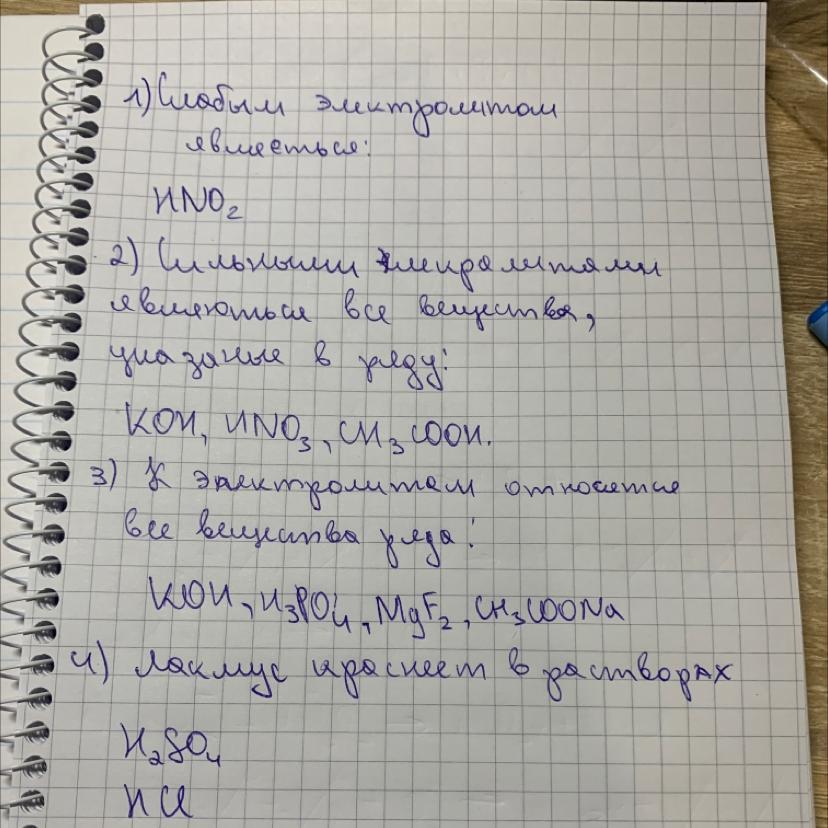 1) Слабым электролитом
является:
HNO₂
2) Сильными элекролитами
являються все вещества,
указаные в ряду:
KOH, HNO₃, CH₃COOH.
3) К электролитам относятся
все вещества ряда:
KOH, H₃PO₄, MgF₂, CH₃COONa
4) Лакмус краснеет в растворах
H₂SO₄
HCl